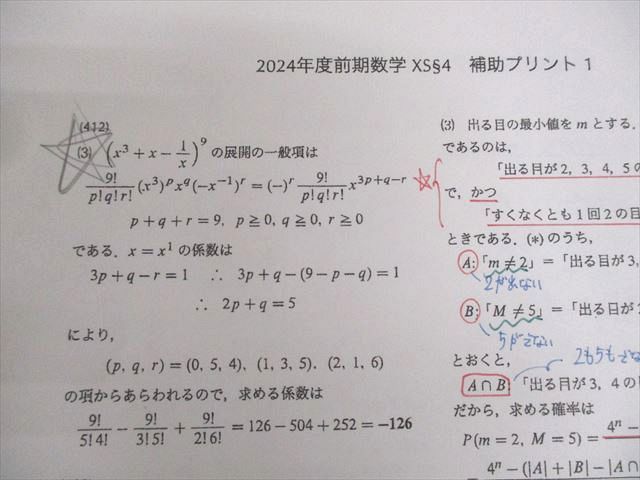 2024年度前期数学 XS§4　補助プリント 1
(412)
(3) (x³ + x − 1/x)⁹ の展開の一般項は
9!/(p!q!r!) (x³)ᵖ x^q (−x⁻¹)ʳ = (−)ʳ 9!/(p!q!r!) x^(3p+q−r)
p + q + r = 9, p ≧ 0, q ≧ 0, r ≧ 0
である. x = x¹ の係数は
3p + q − r = 1 ∴ 3p + q − (9 − p − q) = 1
∴ 2p + q = 5
により,
(p, q, r) = (0, 5, 4), (1, 3, 5). (2, 1, 6)
の項からあらわれるので, 求める係数は
9!/(5!4!) − 9!/(3!5!) + 9!/(2!6!) = 126 − 504 + 252 = −126
(3) 出る目の最小値を m とする.
であるのは,
「出る目が 2, 3, 4, 5 の
で, かつ
「すくなくとも 1 回 2 の目
ときである. (*) のうち,
A:「m ≠ 2」=「出る目が 3,
2が出ない
B:「M ≠ 5」=「出る目が 2
5がでない
とおくと,
2も5もでな
A ∩ B:「出る目が 3, 4 の
だから, 求める確率は
P(m = 2, M = 5) = 4ⁿ −
4ⁿ − (|A| + |B| − |A ∩